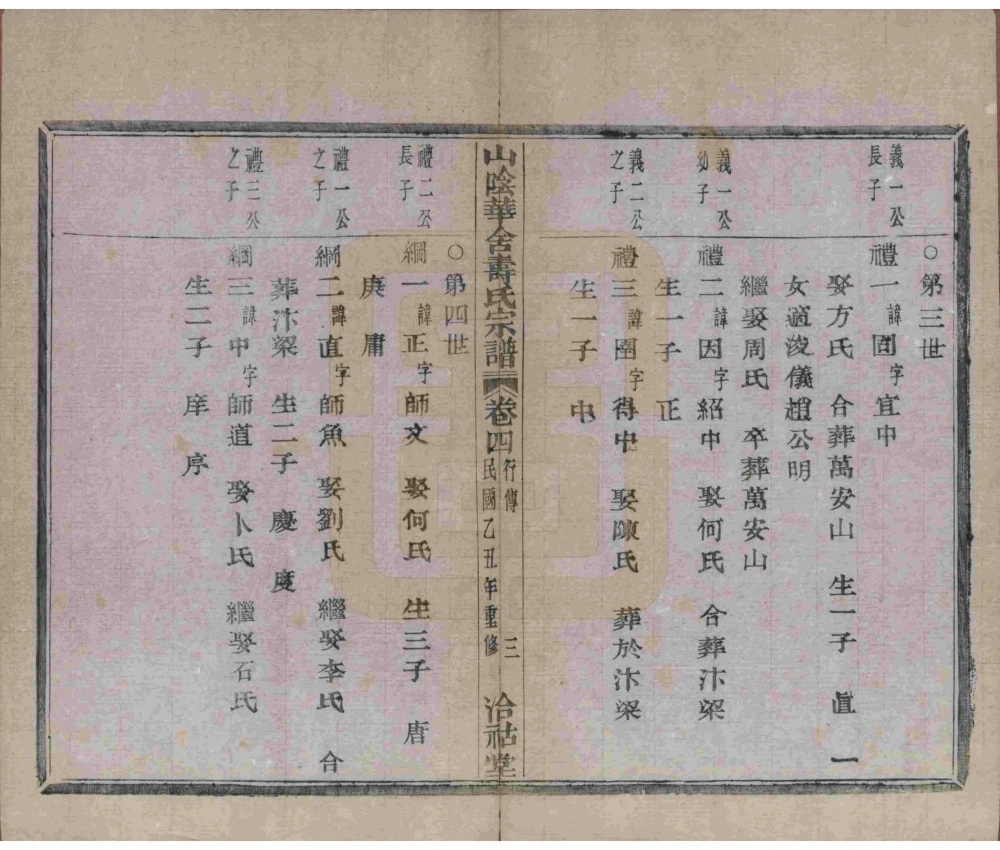 ○第三世
義一公長子
禮一 諱固字宜中
娶方氏 合葬萬安山 生一子 直 一
女適浚儀趙公明
繼娶周氏 卒葬萬安山
義一公幼子
禮二 諱因字紹中 娶何氏 合葬汴梁
生一子 正
義二公之子
禮三 諱圉字得中 娶陳氏 葬於汴梁
生一子 中
山陰華舍壽氏宗譜 卷四 行傳 民國乙丑年重修 三 洽祜堂
○第四世
禮二公長子
綱一 諱正字師文 娶何氏 生三子 唐
庚 庸
禮一公之子
綱二 諱直字師魚 娶劉氏 繼娶李氏 合
葬汴梁 生二子 慶 度
禮三公之子
綱三 諱中字師道 娶卜氏 繼娶石氏
生二子 庠 序